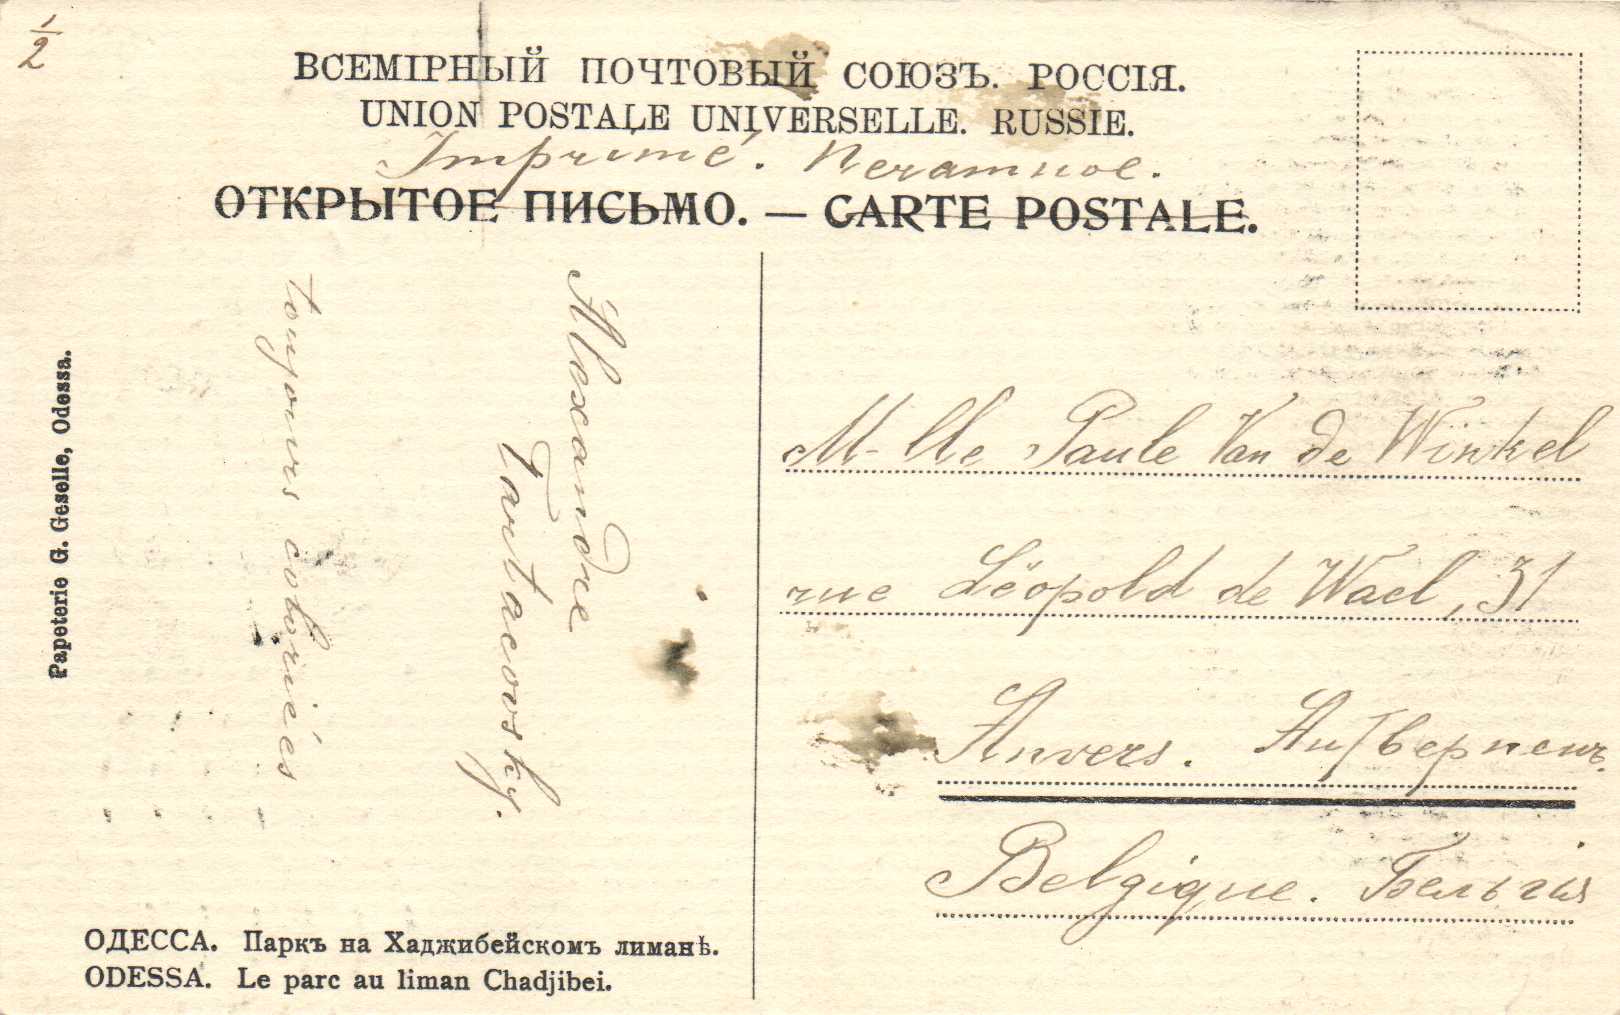 1/2
ВСЕМІРНЫЙ ПОЧТОВЫЙ СОЮЗЪ. РОССІЯ.
UNION POSTALE UNIVERSELLE. RUSSIE.
Imprimé. Печатное.
ОТКРЫТОЕ ПИСЬМО. — CARTE POSTALE.
Alexandre
Tartacovsky.
toujours coloriées
Papeterie G. Geselle, Odessa.
M-lle Paule Van de Winkel
rue Léopold de Wael, 31
Anvers. Антверпенъ.
Belgique. Бельгія
ОДЕССА. Паркъ на Хаджибейскомъ лиманѣ.
ODESSA. Le parc au liman Chadjibei.